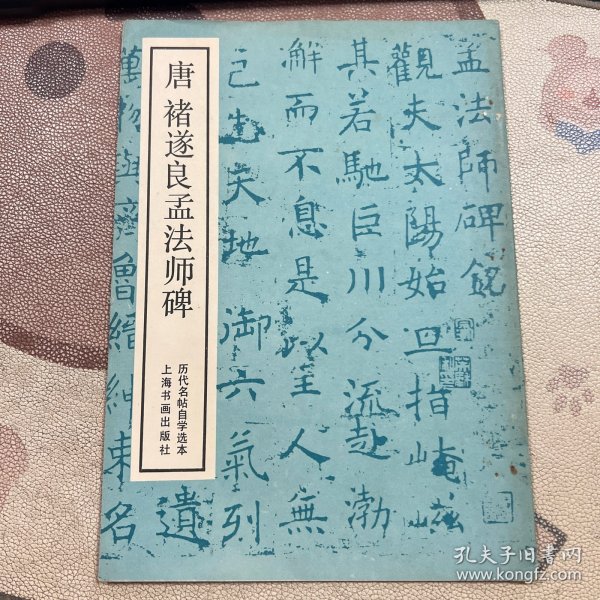 唐 褚遂良孟法师碑
历代名帖自学选本
上海书画出版社
孟法師碑銘
觀夫太陽始旦指崦嵫
其若馳巨川分流赴渤
澥而不息是以至人無
己生天地御六氣列
萬物齊魯縉紳束名
遺
孔夫子旧书网
www.kongfz.com